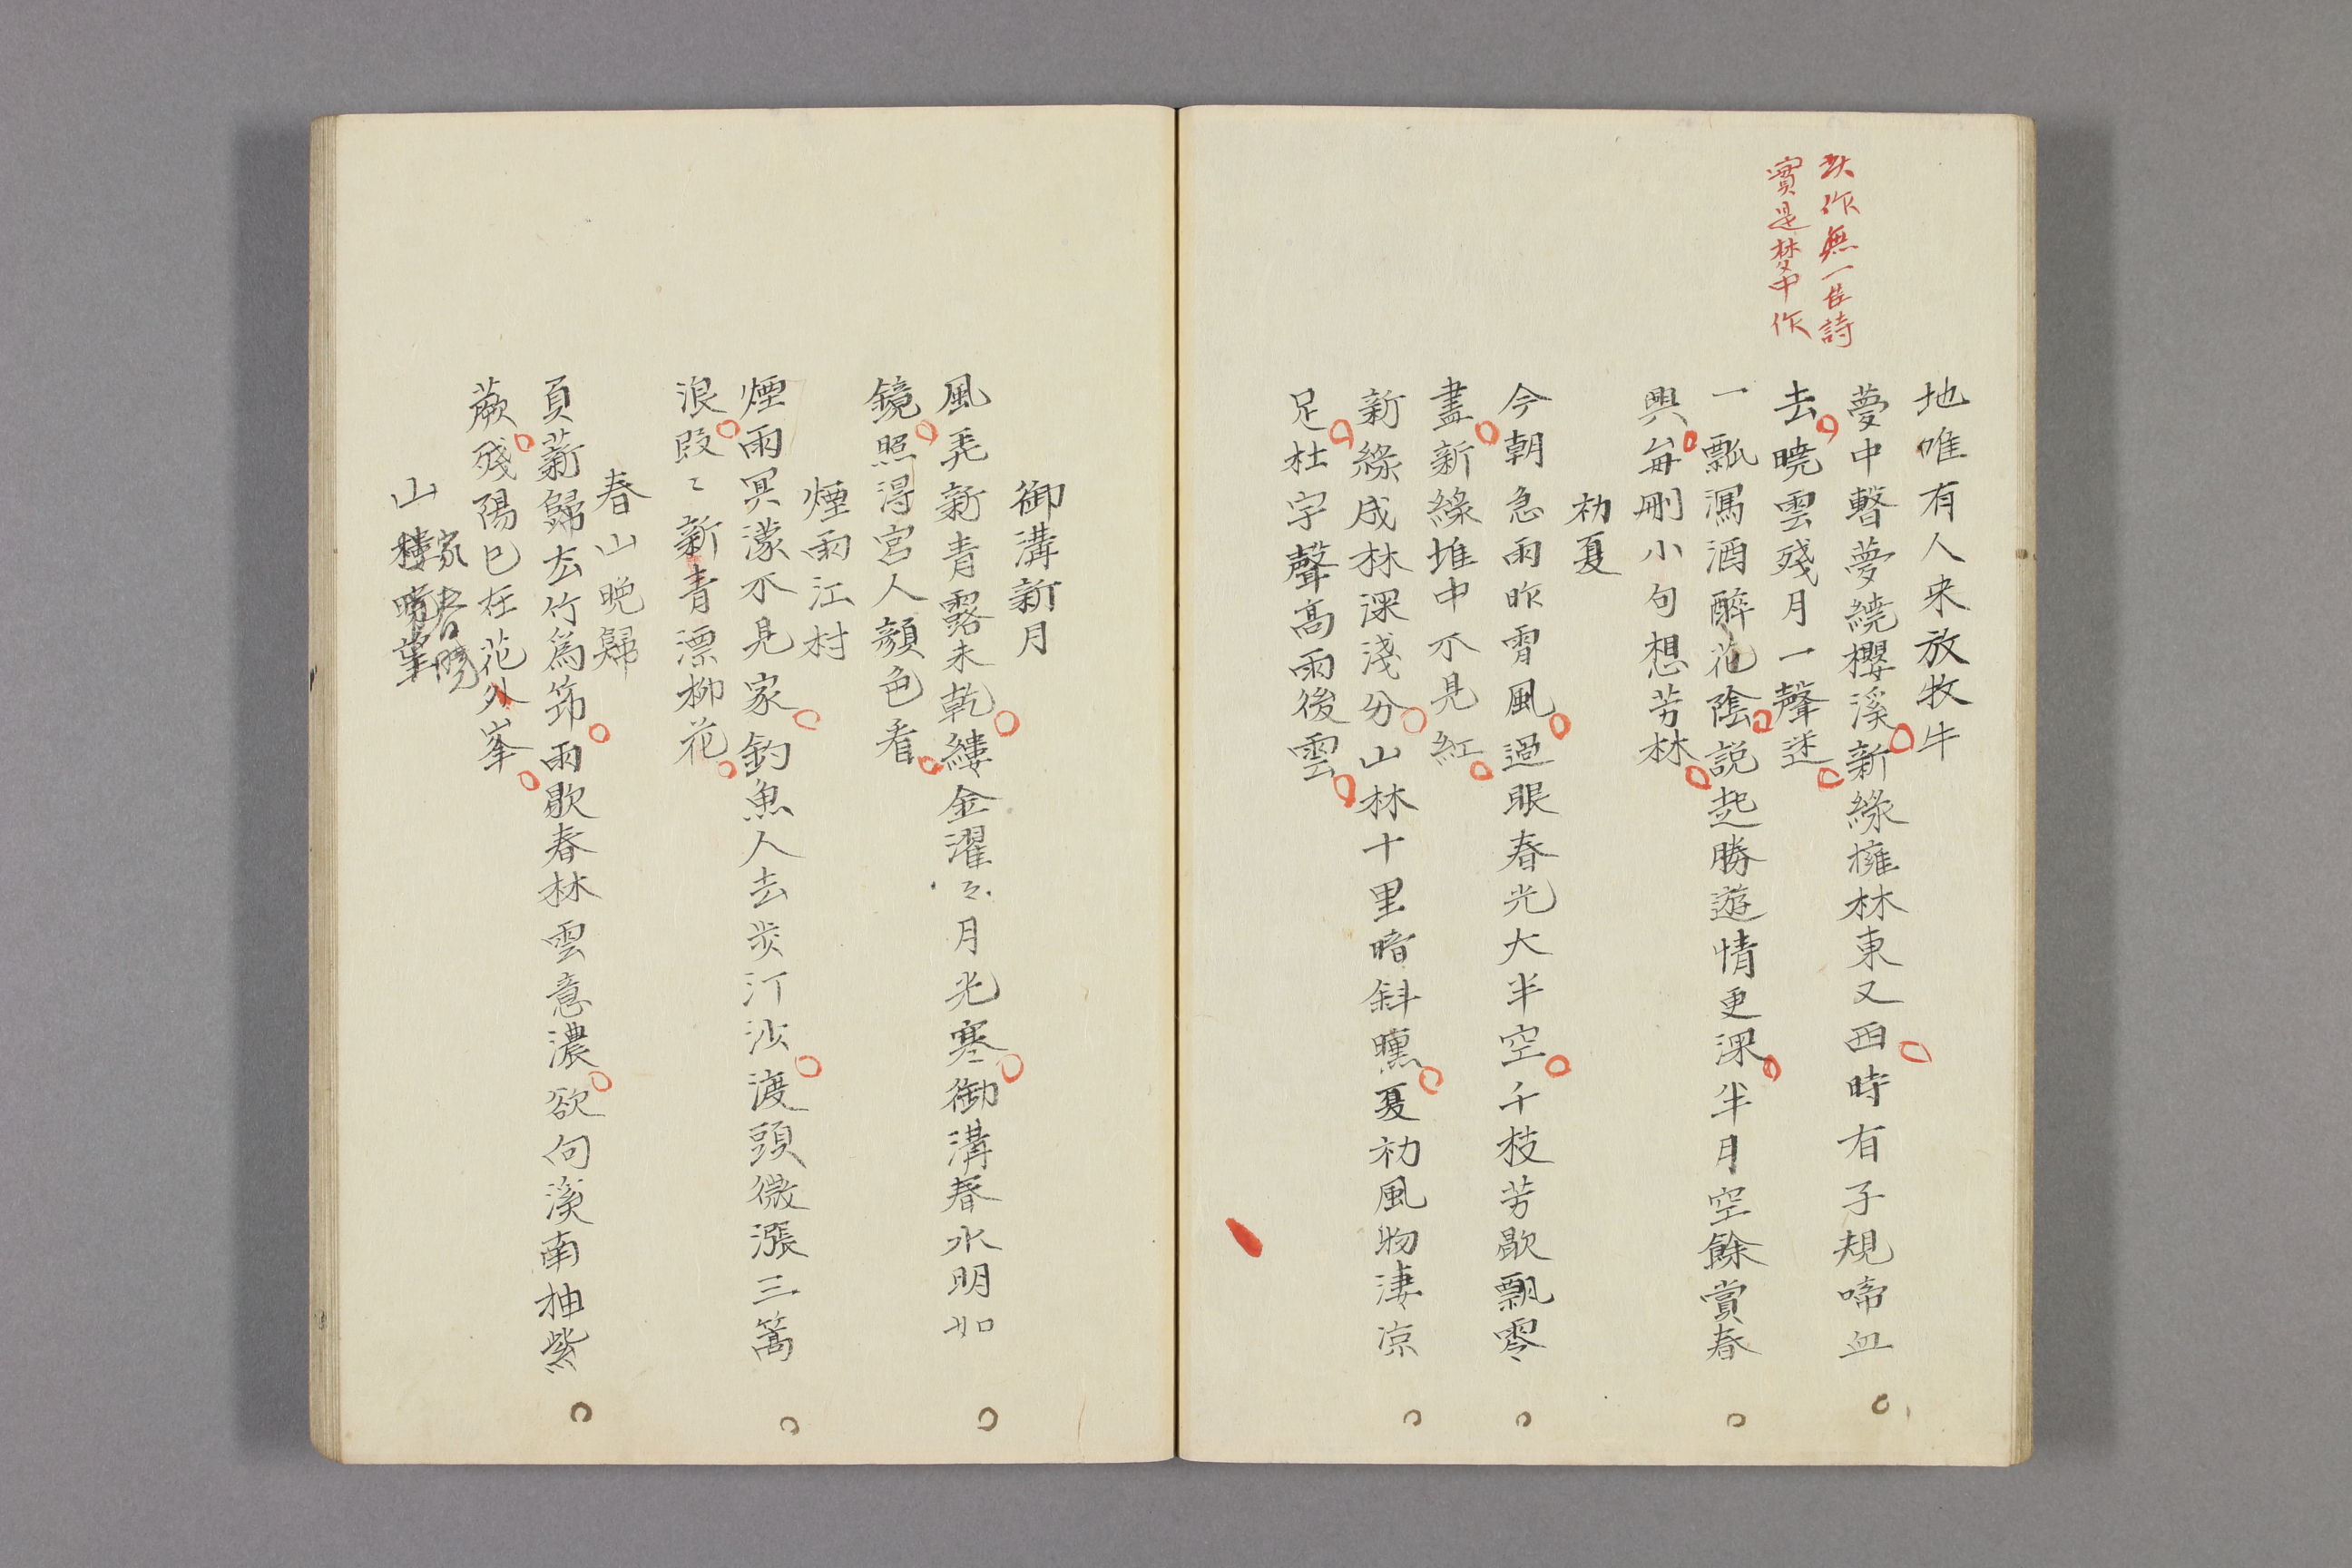 地唯有人来放牧牛
夢中瞖夢繞櫻溪新緑擁林東又西時有子規啼血
去曉雲殘月一聲迷
一瓢瀉酒醉花陰説起勝遊情更深半月空餘賞春
興每刪小句想芳林
初夏
今朝急雨昨宵風過眼春光大半空千枝芳歇飄零
盡新緑堆中不見紅
新緑成林深淺分山林十里暗斜曛夏初風物凄凉
足杜宇聲高雨後雲
作無一佳詩
實是夢中作
御溝新月
風毛新青露未乾縷金濯〻月光寒御溝春水明如
鏡照得宮人顔色看
煙雨江村
煙雨冥濛不見家釣魚人去淡汀沙渡頭微漲三篙
浪段〻新青漂柳花
春山晩歸
負薪歸去竹為筇雨歇春林雲意濃欲向溪南抽紫
蕨殘陽已在花外峯
山樓曉望
家春曉